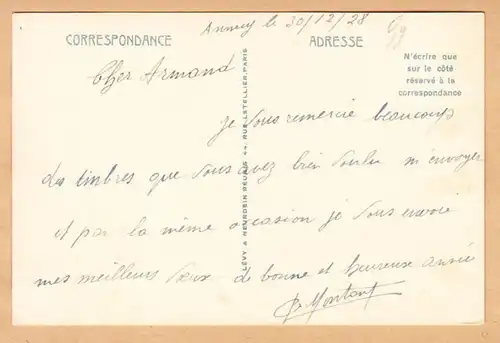 Annecy le 30/12/28
CORRESPONDANCE
ADRESSE
N'écrire que
sur le côté
réservé à la
correspondance
Cher Armand
je vous remercie beaucoup
des timbres que vous avez bien voulu m'envoyer
et par la même occasion je vous envoie
mes meilleurs vœux de bonne et heureuse année
LÉVY & NEURDEIN RÉUNIS 44, RUE LETELLIER, PARIS